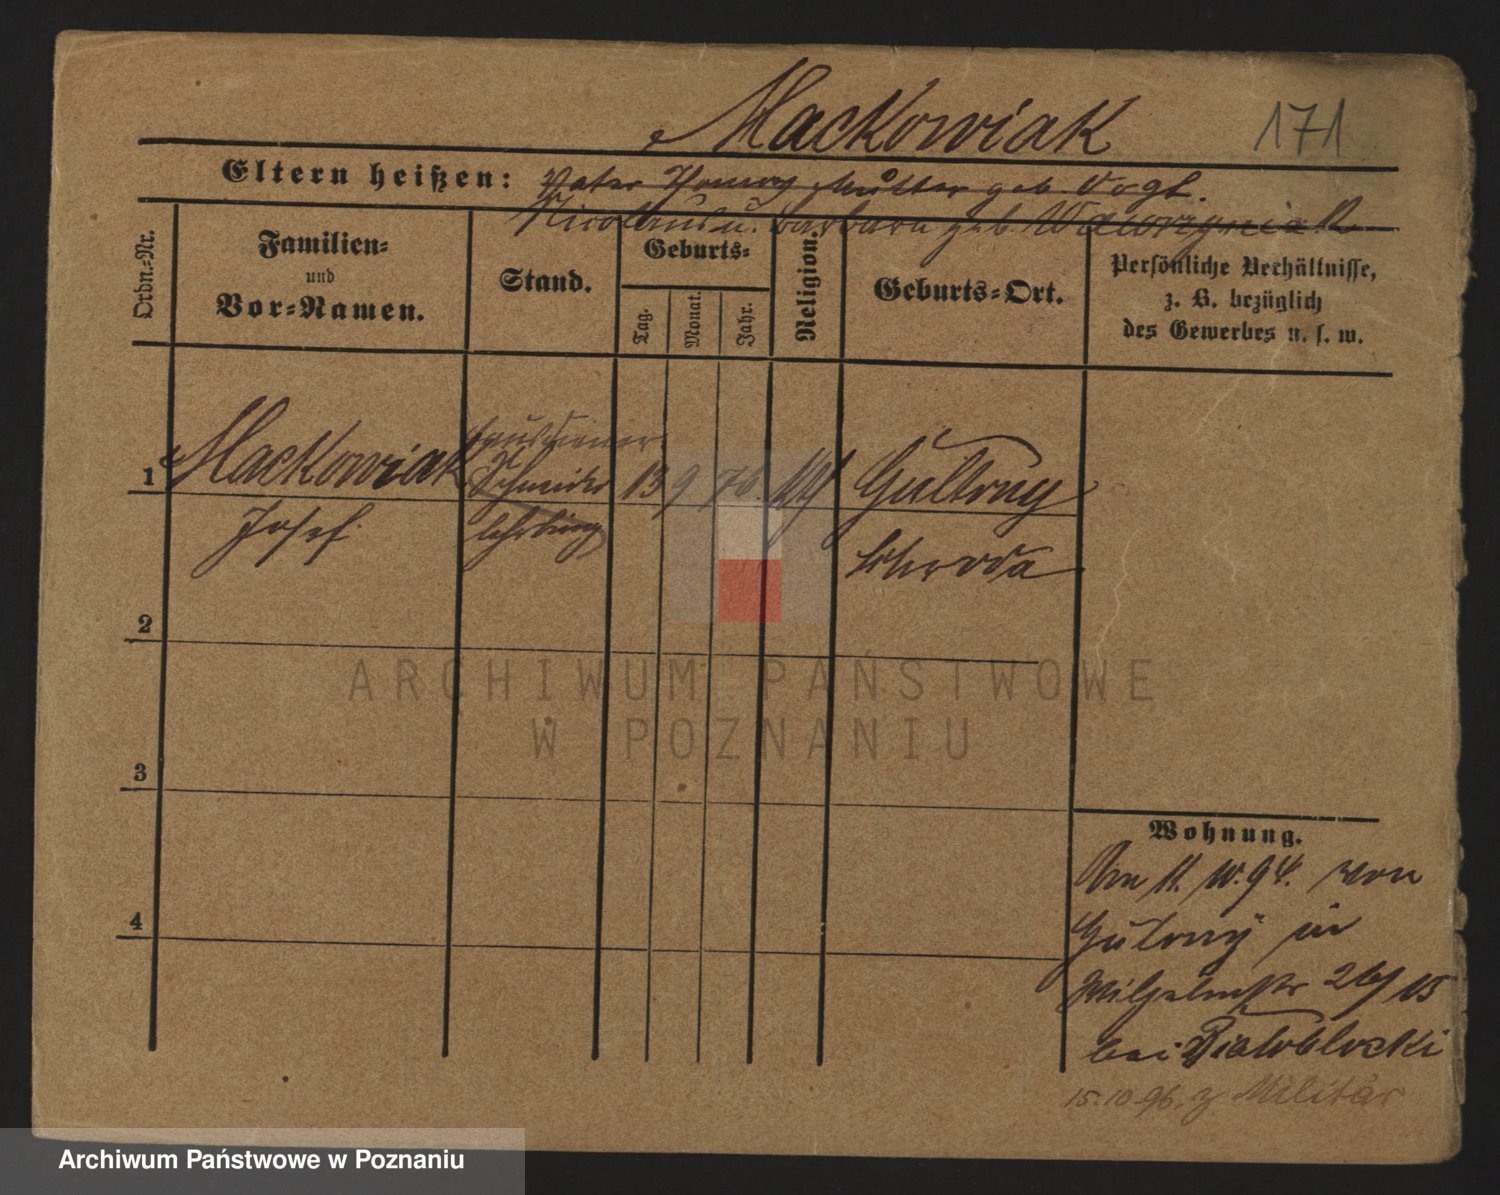 Mackowiak
171
Eltern heißen: Vater Mutter geb. Vogt.
Nicolaus u. Barbara geb. Wawrzyniak
Ordn.-Nr.
Familien-
und
Vor-Namen.
Stand.
Geburts-
Tag.
Monat.
Jahr.
Religion.
Geburts-Ort.
Persönliche Verhältnisse,
z. B. bezüglich
des Gewerbes u. s. w.
Hausdiener
1 Mackowiak Schneider 13 9 76. kth Gultowy
Josef lehrling Schroda
2
ARCHIWUM PAŃSTWOWE
W POZNANIU
3
4
Wohnung.
Am 11. 10. 94. von
Gutowy in
Wilhelmstr 26/15
bei Białobłocki
15.10.96. z Militär
Archiwum Państwowe w Poznaniu